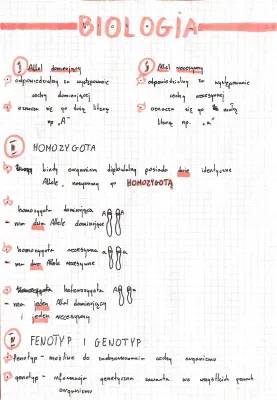 BIOLOGIA
I Allel dominujący
odpowiedzialny za występowanie
cechy dominującej
oznacza się go dużą literą
np. "A"
II Allel recesywny
odpowiedzialny za występowanie
cechy recesywnej
oznacza się go małą
literą np. "a"
III HOMOZYGOTA
kiedy organizm diploidalny posiada dwie identyczne
Allele, nazywamy go HOMOZYGOTĄ
homozygota dominująca A A
- ma dwa Allele dominujące
homozygota recesywna a a
- ma dwa Allele recesywne
heterozygota A a
- ma jeden Allel dominujący
i jeden recesywny
IV FENOTYP I GENOTYP
fenotyp - możliwe do zaobserwowania cechy organizmu
genotyp - informacja genetyczna zawarta we wszystkich genach
organizmu